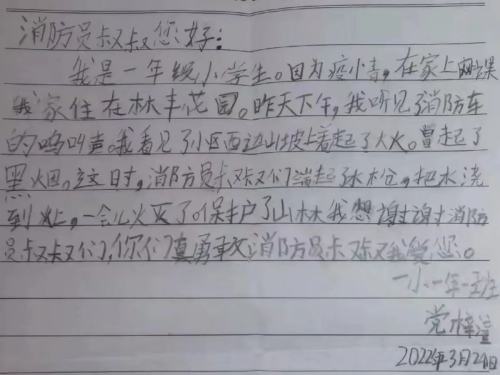 消防员叔叔您好:
我是一年级小学生。因为疫情,在家上网课
我家住在林丰花园。昨天下午,我听见了消防车
的鸣叫声。我看见了小区西边山坡上着起了大火。冒起了
黑烟。这时,消防员叔叔们端起了水枪,把水浇
到火上,一会儿火灭了保护了山林我想谢谢消防
员叔叔们,你们真勇敢消防员叔叔我爱您。
一小一年一班
党梓渲
2022年3月24日